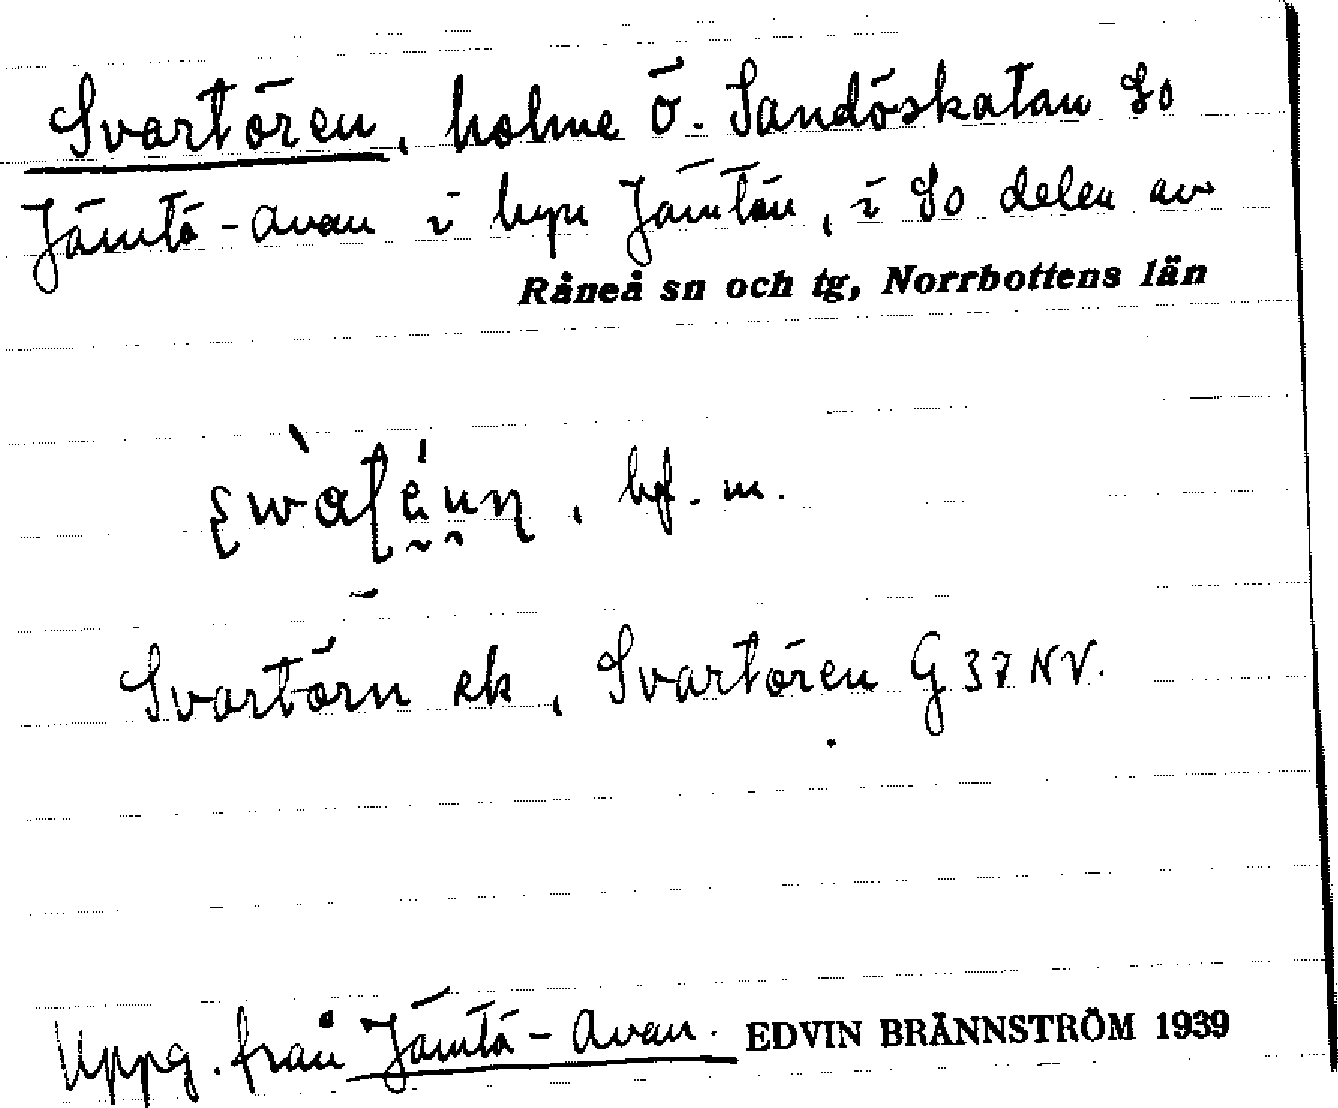 Svartören, holme ö. Sandöskatan So
Jämtö-avan i byn Jämtön, i So delen av
Råneå sn och tg, Norrbottens län
bf. m.
Svartörn ek, Svartören G 37 NV.
Uppg. från Jämtö-Avan. EDVIN BRÄNNSTRÖM 1939